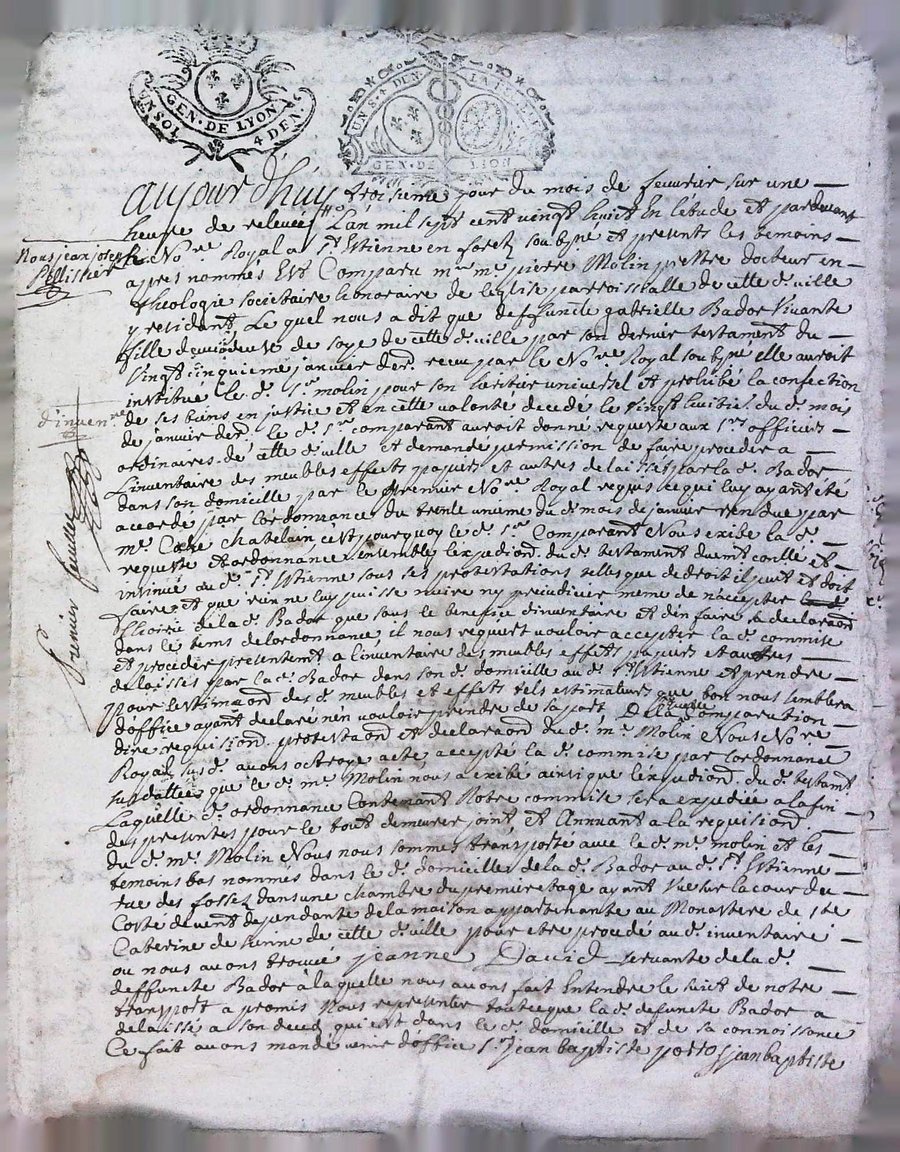 UN SOL 4 DEN.
GEN. DE LYON
UN S. 4 DEN. LA
GEN. DE LION
aujourd'huy troisieme jour du mois de fevvrier sur une
heure de relevée L'an mil sept cent vingt huict En l'etude et pardevant
Nous jean joseph
Pellissier
le No.re Royal a S.t Estienne en forest soubz.né et presents les temoins
apres nommés Est Comparu m.re m.e pierre Molin prestre docteur en
theologie societaire honoraire de l'eglise parroissialle de cette d. ville
y residant, Le quel nous a dit que deffuncte gabrielle Bador Vivante
fille de soye de cette d. ville par son dernier testament du
Vingt cinquieme janvier der. receu par le No.re Royal soubz.né elle auroit
institué le d. S.r molin pour son heritier universel et prohibé la confection
d'inven.re
de ses biens en justice et en cette volonté decedé le Vingt huitie. du d. mois
de janvier der. le d. S.r comparant auroit donné requeste aux S.rs officiers
ordinaires de cette d. ville et demandé permission de faire proceder a
L'inventaire des meubles effets papiers et autres delaissés par la d. Bador
dans son domicille par le premier No.re Royal requis ce qui luy ayant été
accordé par L'ordonnance du trente unieme du d. mois de janvier rendue par
m.r chatelain c'est pourquoy le d. S.r Comparant Nous exibe la d.
requeste et ordonnance ensemble l'expedion. du d. testament duemt. collé et
insinué au d. S.t Estienne sous ses protestations telles que de droit il peut et doit
Premier feuillet
faire et que rien ne luy puisse nuire ny prejudicier meme de n'accepter
L'hoirie de la d. Bador que sous le benefice d'inventaire et d'en faire sa declaraon
dans le tems de l'ordonnance il nous requiert vouloir accepter la d. commise
et proceder presentemt a l'inventaire des meubles effets papiers et autres
delaissés par la d. Bador dans son d. domicille au d. S.t Estienne et prendre
pour l'estimaon des d. meubles et effets tels estimateurs que bon nous semblera
d'office ayant declaré n'en vouloir prendre de sa part De la quelle Comparution
dire requision. protestaon et declaraon du d. m.e Molin Nous No.re
Royal sus d. avons octroye acte, accepté la d. commise par L'ordonnance
sus dattée que le d. m.e Molin nous a exibé ainsi que l'expedion. du d. testamt
Laquelle d. ordonnance Contenant Notre commise sera expediée a la fin
des presentes pour le tout demeurer joint et Annuant a la requision.
du d. m.e Molin Nous nous sommes transporté avec le d. m.e molin et les
temoins bas nommés dans le d. domicille de la d. Bador au d. S.t Estienne
rue des fossez dans une chambre du premier etage ayant Vue sur la cour du
Costé de vent dependante de la maison appartenante au Monastere de S.te
Caterine de Sienne de cette d. ville pour etre procedé au d. inventaire
ou nous avons trouvé jeanne David servante de la d.
deffuncte Bador a laquelle nous avons fait Entendre le suict de notre
transport a promis Nous representer tout ce que la d. defuncte Bador a
delaissé a son deced qui est dans le d. domicille et de sa connoissance
Ce fait avons mandé venir d'office S.r jean baptiste jean baptiste